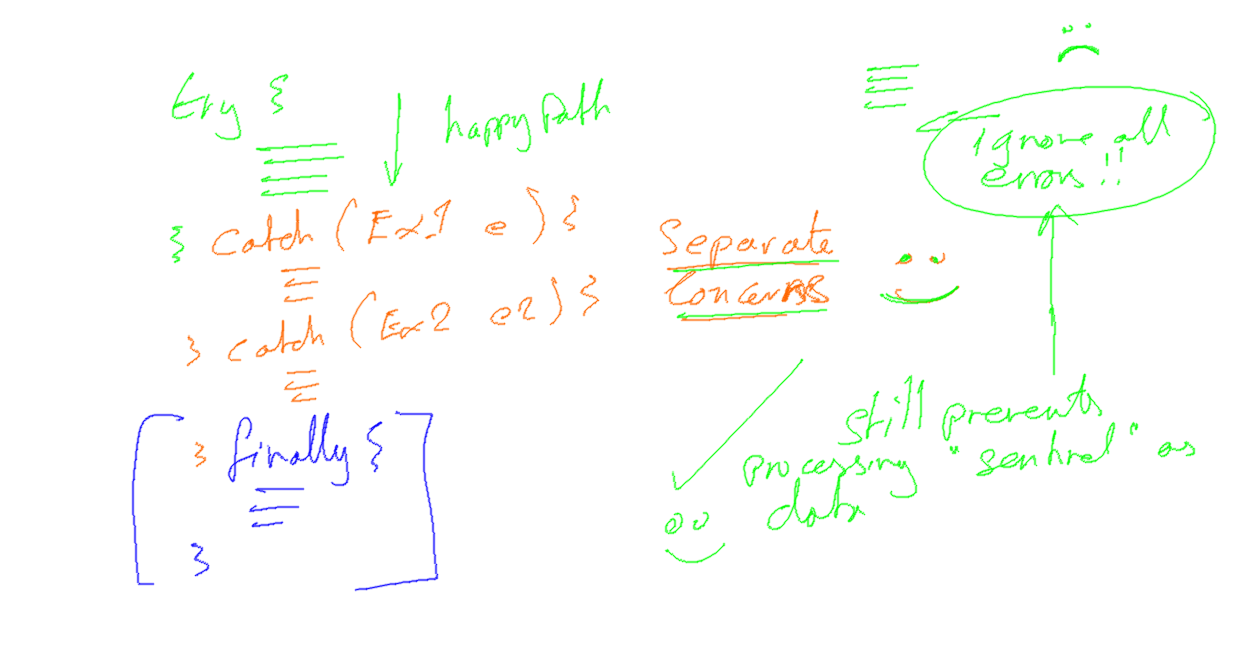 try {
happy path
} catch (Ex1 e) {
} catch (Ex2 e2) {
} finally {
}
Separate
Concerns
ignore all
errors!!
still prevents
processing "sentinel" as
data